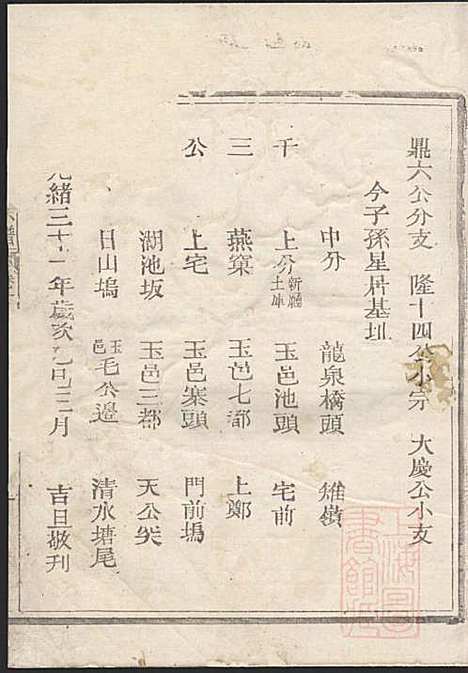 鼎六公分支 隆十四公小宗 大慶公小支
今子孫星居基址
中分 龍泉橋頭 雉嶺
千 上分新廳土庫 玉邑池頭 宅前
三 燕窠 玉邑七都 上鄭
公 上宅 玉邑寨頭 門前塢
湖池坂 玉邑三都 天公
日山塢 玉邑毛公邉 清水塘尾
光緒三十一年歲次乙巳三月 吉旦敬刊
上海圖書館藏